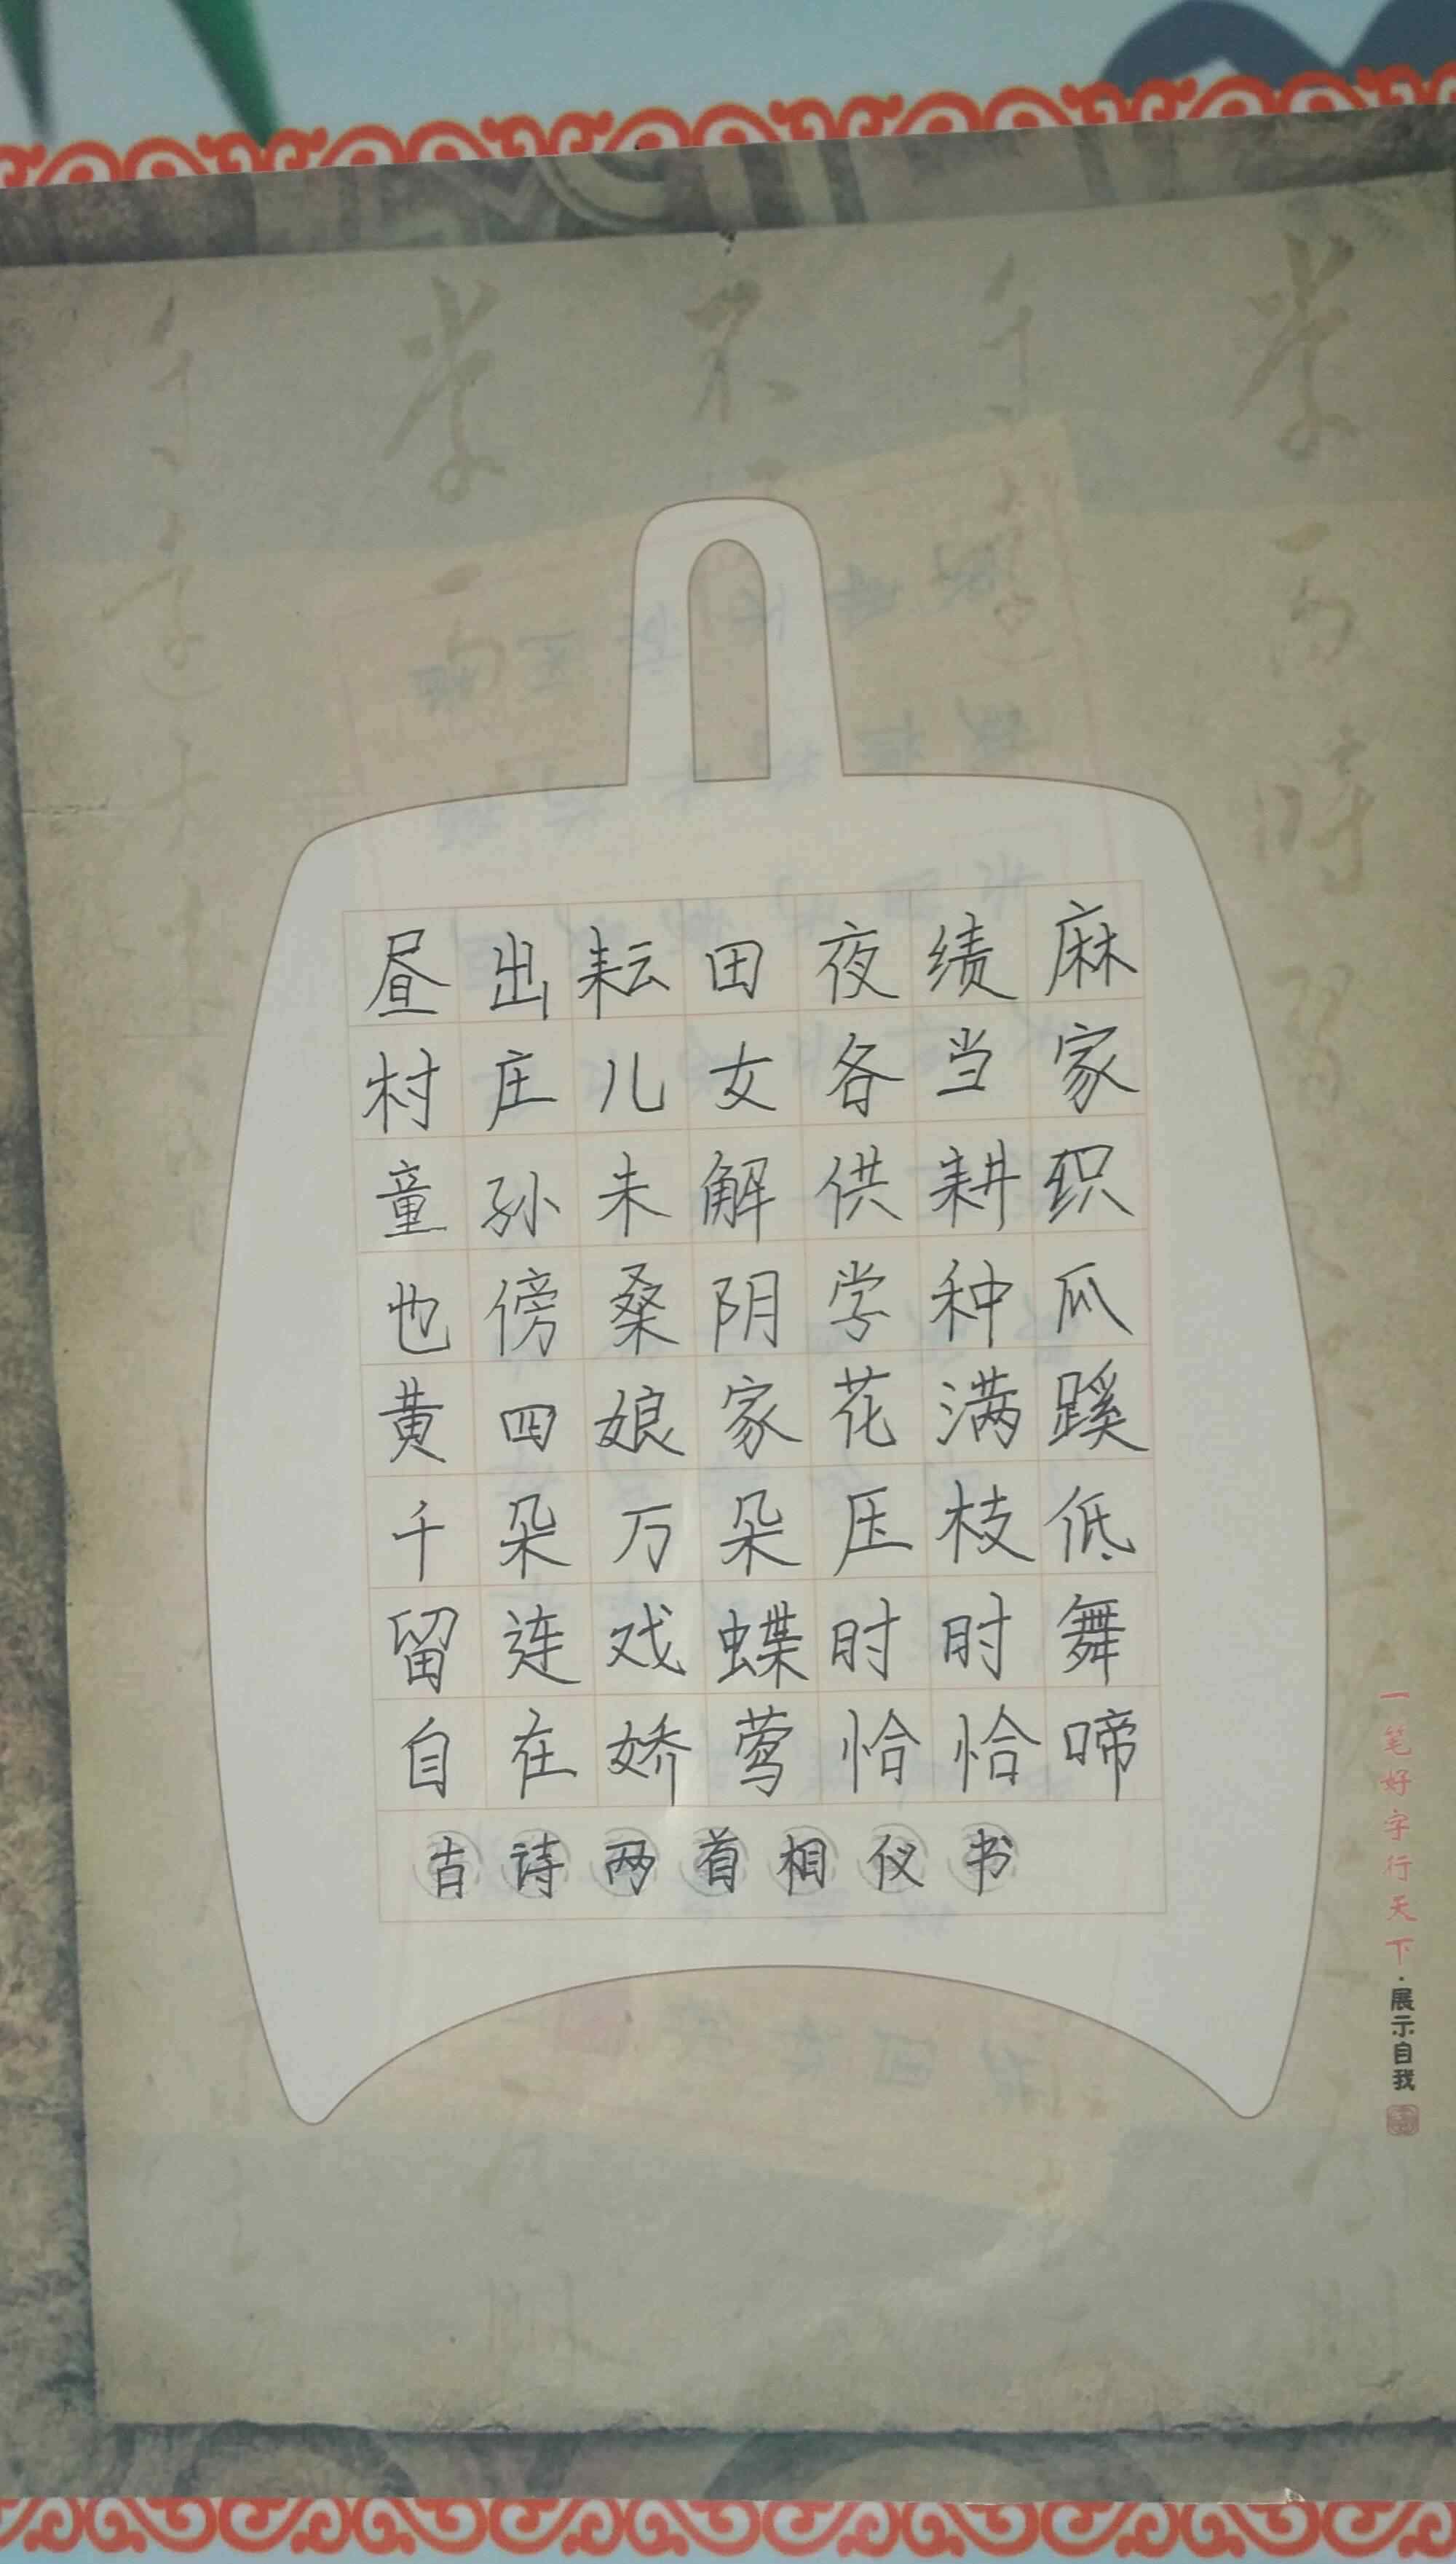 昼出耘田夜绩麻
村庄儿女各当家
童孙未解供耕织
也傍桑阴学种瓜
黄四娘家花满蹊
千朵万朵压枝低
留连戏蝶时时舞
自在娇莺恰恰啼
古诗两首相仪书
一笔好字行天下·展示自我